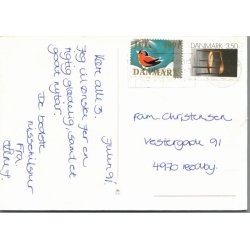 Julen 91.
Kære alle 3
Jeg vil ønske jer en
rigtig glædelig jul, samt et
godt nytår.
De bedste
nissehilsner
Fra
DANMARK
DANMARK 3.50
Fam Christensen
Vestergade 91
4970 Rødby.